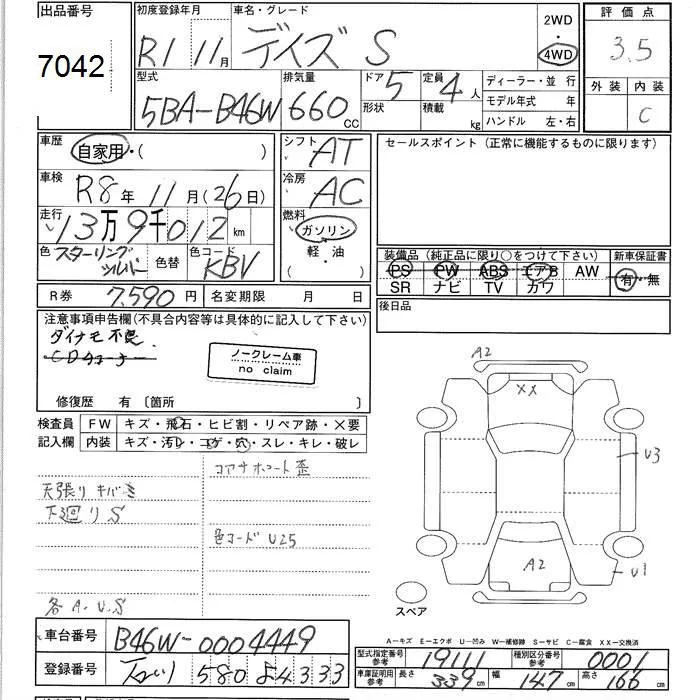 出品番号
7042
初度登録年月
R1 11月
車名・グレード
デイズ S
2WD
・
4WD
評価点
3.5
外装 内装
C
型式
5BA-B46W
排気量
660 cc
ドア 5
形状
定員 4人
積載 kg
ディーラー・並行
モデル年式 年
ハンドル 左・右
車歴
自家用・( )
シフト AT
セールスポイント (正常に機能するものに限ります)
車検
R8年 11月(26日)
冷房 AC
走行
13万9千012 km
燃料
ガソリン
軽・油
色 スターリングシルバー 色替
色コード KBV
装備品 (純正品に限り○をつけて下さい)
PS PW ABS エアB AW
SR ナビ TV カワ
新車保証書
有・無
R券 7,590円
名変期限 月 日
後日品
注意事項申告欄(不具合内容等は具体的に記入して下さい)
ダイナモ不良
CDチューナー
ノークレーム車
no claim
修復歴 有 〔箇所 〕
検査員
記入欄
FW キズ・飛石・ヒビ割・リペア跡・×要
内装 キズ・汚レ・コゲ・穴・スレ・キレ・破レ
コアサポート歪
天張り キバミ
下廻り S
色コード U25
各 A.U.S
A2
XX
U3
A2
U1
スペア
A-キズ E-エクボ U-凹み W-補修跡 S-サビ C-腐食 XX-交換済
車台番号 B46W-0004449
登録番号 580 5433
型式指定番号
参考
19111
種別区分番号
参考
0001
車庫証明用
参考
長さ 339cm 幅 147cm 高さ 166cm